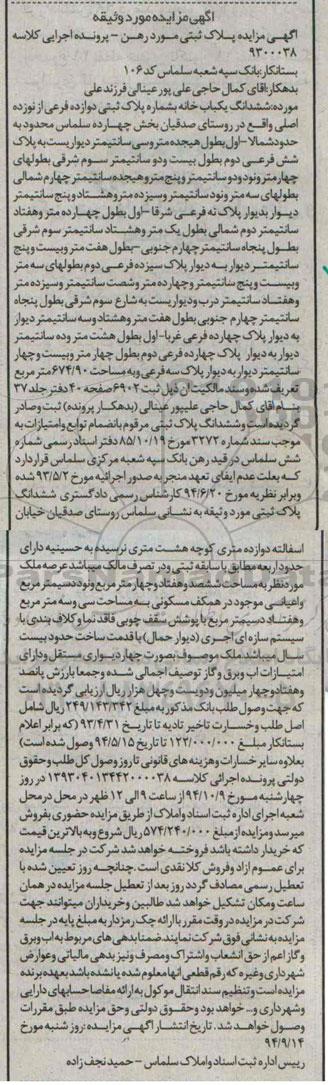 آگهی مزایده مورد وثیقه
آگهی مزایده پلاک ثبتی مورد رهن - پرونده اجرایی کلاسه ۹۳۰۰۰۳۸
بستانکار: بانک سپه شعبه سلماس کد ۱۰۶
بدهکار: آقای کمال حاجی علی پور عینالی فرزند علی
مورده: ششدانگ یکباب خانه بشماره پلاک ثبتی دوازده فرعی از نوزده
اصلی واقع در روستای صدقیان بخش چهارده سلماس محدود به
حدود شمالا - اول بطول هیجده متر و سی سانتیمتر دیواریست به پلاک
شش فرعی دوم بطول بیست و دو سانتیمتر سوم شرقی بطولهای
چهار متر و نود و دو سانتیمتر و پنج متر و هیجده سانتیمتر چهارم شمالی
بطولهای سه متر و نود سانتیمتر و سیزده متر و هشتاد و پنج سانتیمتر
دیوار بدیوار پلاک نه فرعی شرقا - اول بطول چهارده متر و هفتاد
سانتیمتر دوم شمالی بطول یک متر و هشتاد سانتیمتر سوم شرقی
بطول پنجاه سانتیمتر چهارم جنوبی - بطول هفت متر و بیست و پنج
سانتیمتر دیوار به دیوار پلاک سیزده فرعی دوم بطولهای سه متر
و بیست و پنج سانتیمتر و چهارده متر و شصت سانتیمتر و سیزده متر
و هفتاد سانتیمتر درب و دیواریست به شارع سوم شرقی بطول پنجاه
سانتیمتر چهارم جنوبی بطول هفت متر و هشتاد و سه سانتیمتر دیوار
به دیوار پلاک چهارده فرعی غربا - اول بطول هشت متر و ده سانتیمتر
دیوار به دیوار پلاک چهارده فرعی دوم بطول چهار متر و بیست و چهار
سانتیمتر دیوار به دیوار پلاک سه فرعی و به مساحت ۶۷۴/۹۰ متر مربع
تعریف شده و سند مالکیت آن ذیل ثبت ۶۹۰۲ صفحه ۴۰ دفتر جلد ۳۷
بنام آقای کمال حاجی علیپور عینالی (بدهکار پرونده) ثبت و صادر
گردیده است و ششدانگ پلاک ثبتی مرقوم بانضمام توابع و امتیازات به
موجب سند شماره ۳۲۷۲ مورخ ۸۵/۱۰/۱۹ دفتر اسناد رسمی شماره
شش سلماس در قید رهن بانک سپه شعبه مرکزی سلماس قرار دارد
که بعلت عدم ایفای تعهد منجر به صدور اجرائیه مورخ ۹۳/۵/۲ شده
و برابر نظریه مورخ ۹۴/۶/۲۰ کارشناس رسمی دادگستری ششدانگ
پلاک ثبتی مورد وثیقه به نشانی سلماس روستای صدقیان خیابان
اسفالته دوازده متری کوچه هشت متری نرسیده به حسینیه دارای
حدود اربعه مطابق با سابقه ثبتی و در تصرف مالک میباشد عرصه ملک
مورد نظر به مساحت ششصد و هفتاد و چهار متر مربع و نود دسیمتر مربع
و اعیانی موجود در همکف مسکونی به مساحت سی و سه متر مربع
و هفتاد دسیمتر مربع با پوشش سقف چوبی فاقد نما و کلاف بندی با
سیستم سازه ای آجری (دیوار حمال) با قدمت ساخت حدود بیست
سال میباشد ملک موصوف بصورت چهاردیواری مستقل و دارای
امتیازات آب و برق و گاز توصیف اجمالی شده و جمعا بارزش پانصد
و هفتاد و چهار میلیون و دویست و چهل هزار ریال ارزیابی گردیده است
که جهت وصول طلب بانک مذکور به مبلغ ۲۴۹/۱۴۳/۳۴۲ ریال شامل
اصل طلب و خسارت تاخیر تادیه تا تاریخ ۹۳/۴/۳۱ (که برابر اعلام
بستانکار مبلغ ۱۲۲/۰۰۰/۰۰۰ تا تاریخ ۹۴/۵/۱۵ وصول شده است)
بعلاوه سایر خسارات و هزینه های قانونی تا روز وصول کل طلب و حقوق
دولتی پرونده اجرائی کلاسه ۱۳۹۳۰۴۰۱۳۴۴۲۰۰۰۰۳۸ در روز
چهارشنبه مورخ ۹۴/۱۰/۹ از ساعت ۹ الی ۱۲ ظهر در محل در محل
شعبه اجرای اداره ثبت اسناد و املاک از طریق مزایده حضوری بفروش
میرسد و مزایده از مبلغ ۵۷۴/۲۴۰/۰۰۰ ریال شروع و به بالاترین قیمت
که خریدار داشته باشد فروخته خواهد شد شرکت در جلسه مزایده
برای عموم آزاد و فروش کلا نقدی است. چنانچه روز تعیین شده با
تعطیل رسمی مصادف گردد روز بعد از تعطیل جلسه مزایده در همان
ساعت و مکان تشکیل خواهد شد طالبین و خریداران میتوانند جهت
شرکت در مزایده در وقت مقرر با ارائه چک رمزدار به مبلغ پایه در جلسه
مزایده به نشانی فوق شرکت نمایند ضمنا بدهی های مربوط به آب و برق
و گاز اعم از حق انشعاب و اشتراک و مصرف و نیز بدهی مالیاتی و عوارض
شهرداری و غیره که رقم قطعی آنها معلوم شده یا نشده باشد بعهده برنده
مزایده است و تنظیم سند انتقال موکول به ارائه مفاصا حسابهای دارایی
و شهرداری و... خواهد بود و حقوق دولتی و حق مزایده طبق مقررات
وصول خواهد شد. تاریخ انتشار آگهی مزایده: روز شنبه مورخ
۹۴/۹/۱۴
رییس اداره ثبت اسناد و املاک سلماس - حمید نجف زاده